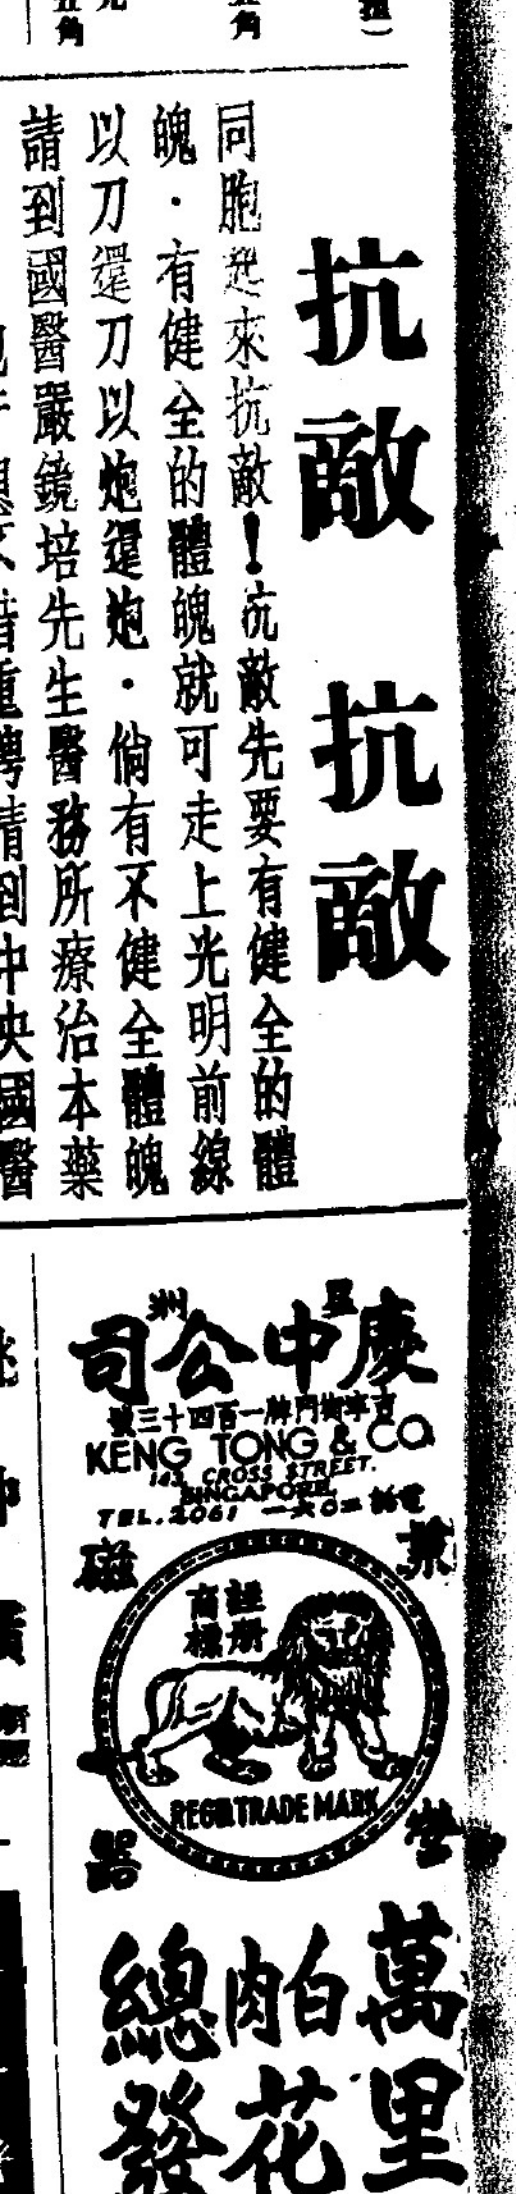 抗敵　抗敵
同胞起來抗敵！抗敵先要有健全的體
魄·有健全的體魄就可走上光明前線
以刀還刀以炮還炮·倘有不健全體魄
請到國醫嚴鏡培先生醫務所療治本藥
星洲
慶中公司
吉寧街門牌一百四十三號
KENG TONG & CO.
143, CROSS STREET.
SINGAPORE.
TEL. 2061 電話二〇六一
兼營磁器
註冊商標
REGD. TRADE MARK
萬里
白花
肉
總發